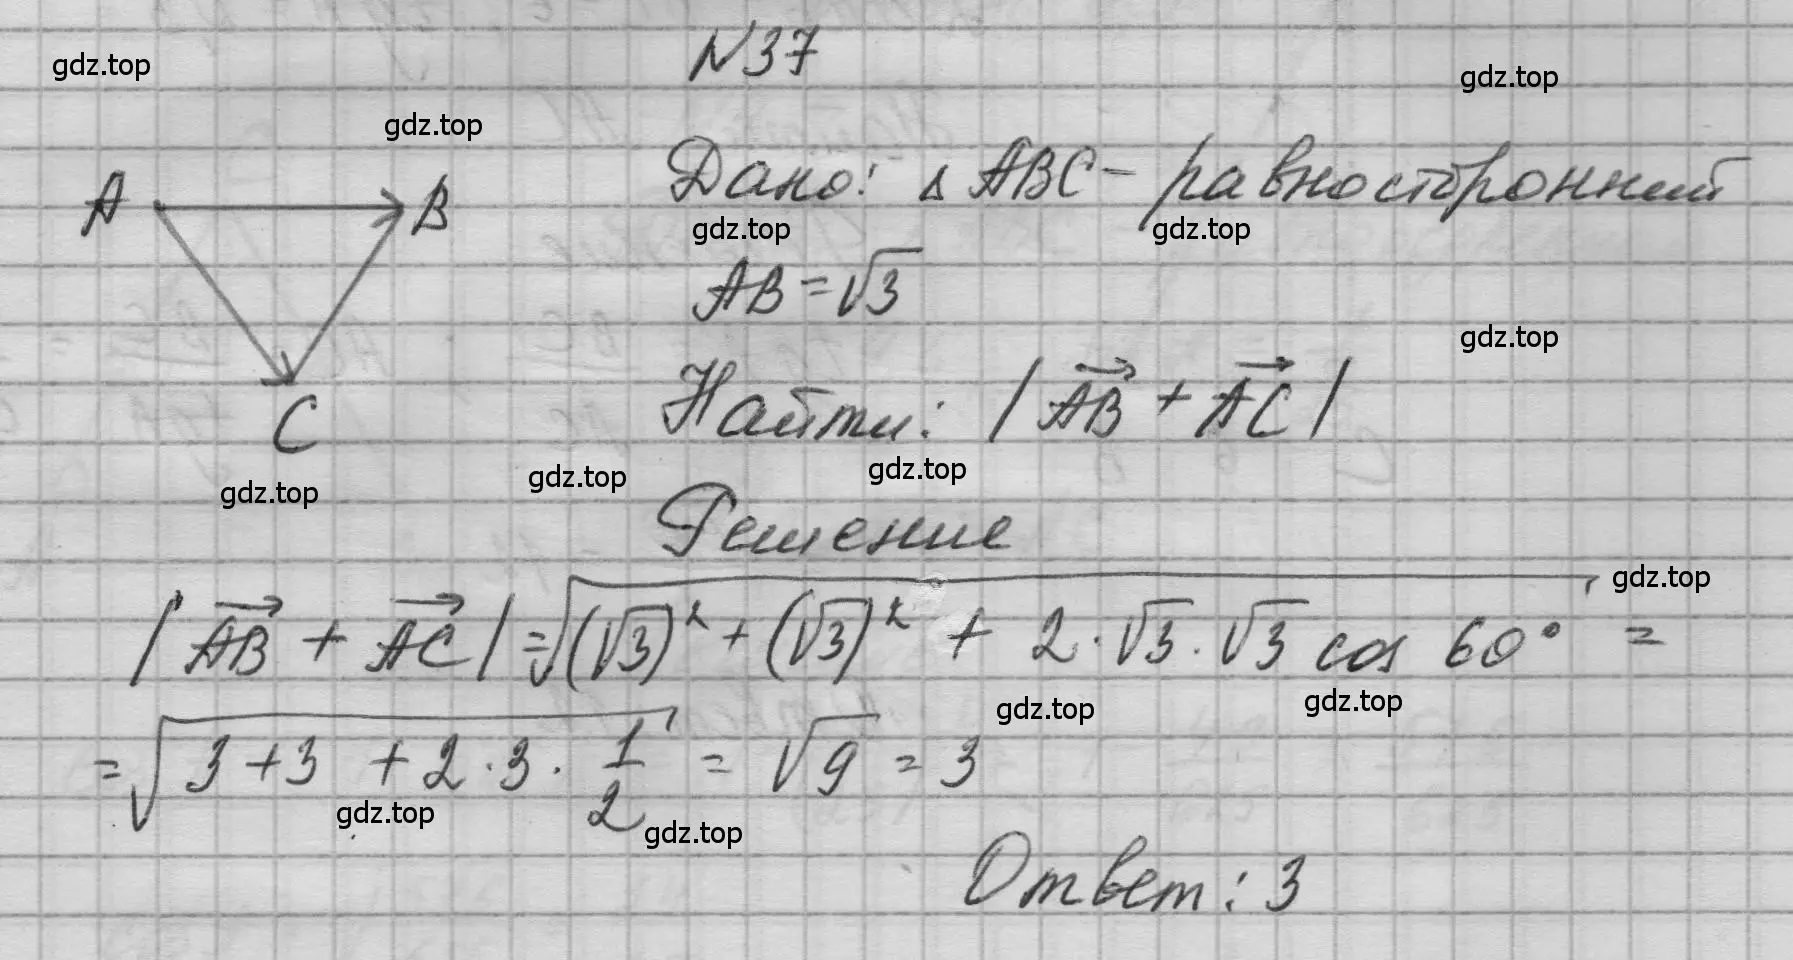 N37
gdz.top
gdz.top
gdz.top
Дано: Δ ABC – равносторонний
A
B
gdz.top
gdz.top
AB = √3
gdz.top
Найти: |AB + AC|
C
gdz.top
gdz.top
gdz.top
Решение
gdz.top
|AB + AC| = √(√3)² + (√3)² + 2 · √3 · √3 cos 60° =
gdz.top
gdz.top
= √3 + 3 + 2 · 3 · 1/2 = √9 = 3
gdz.top
gdz.top
Ответ: 3